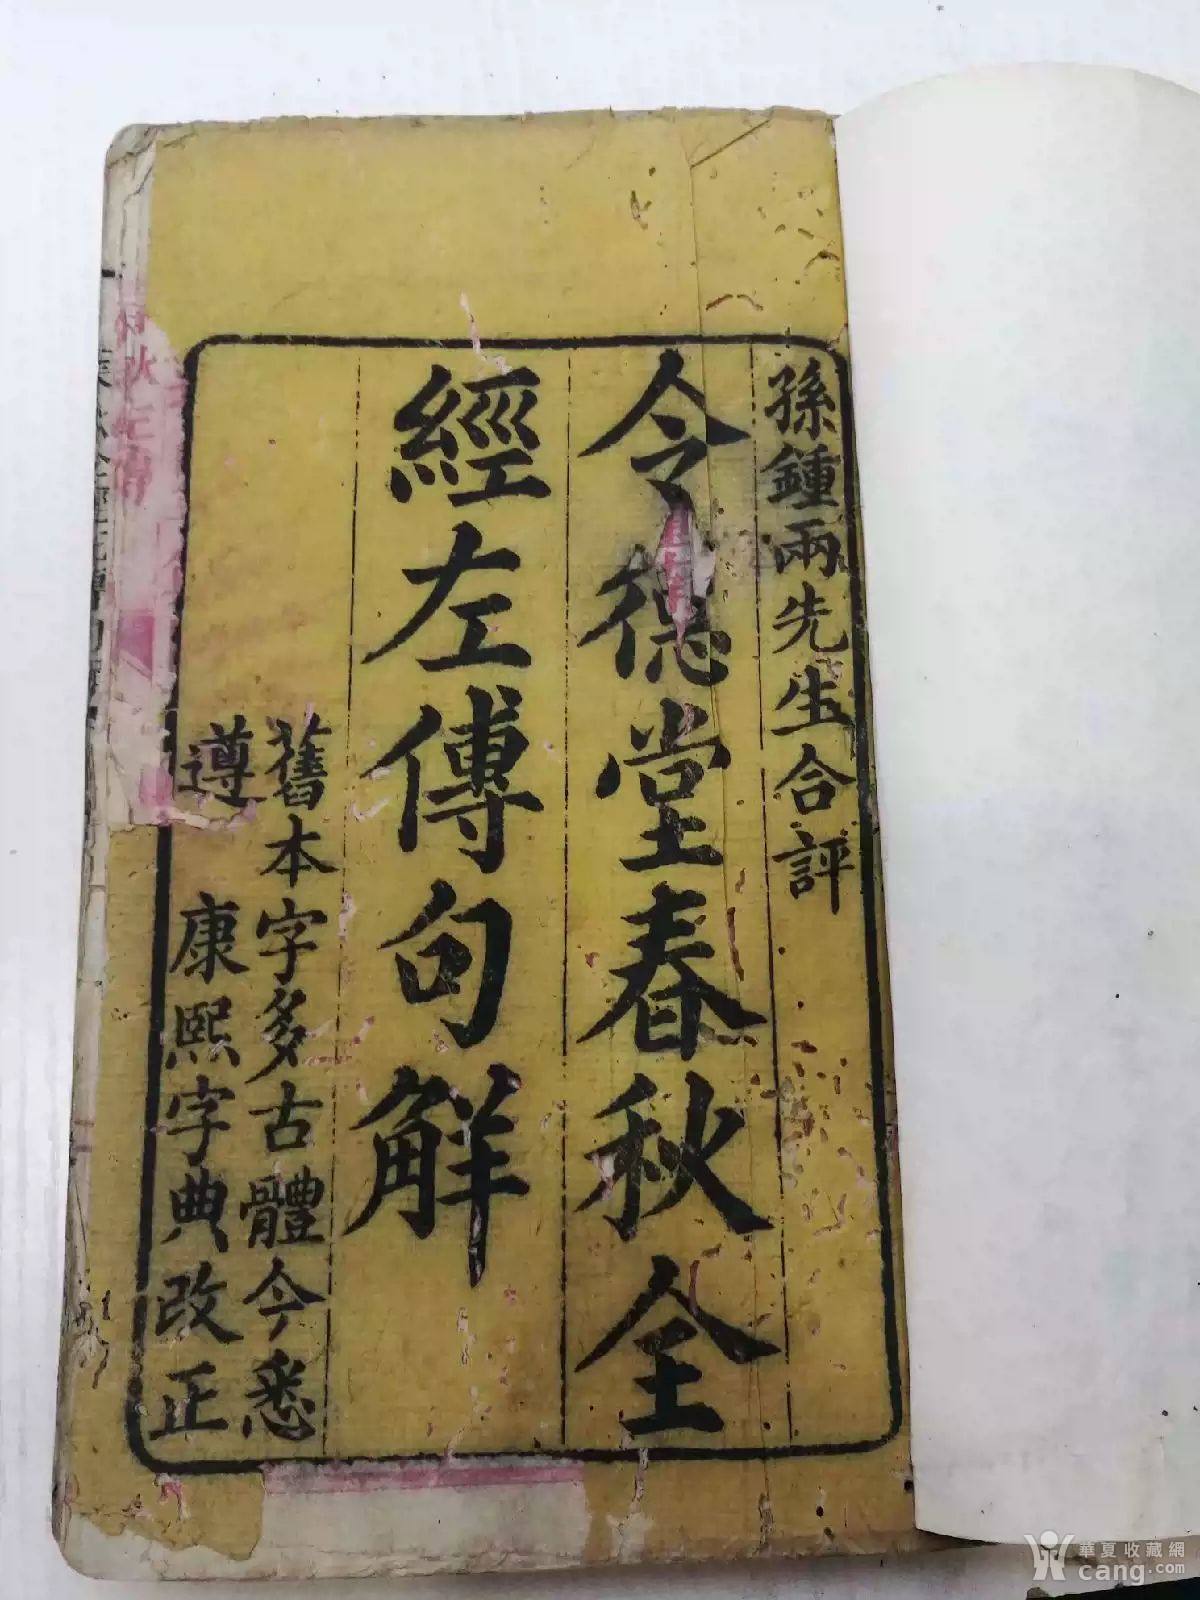 孫鍾兩先生合評
令德堂春秋全
經左傳句解
舊本字多古體今悉
遵 康熙字典改正
華夏收藏網
cang.com